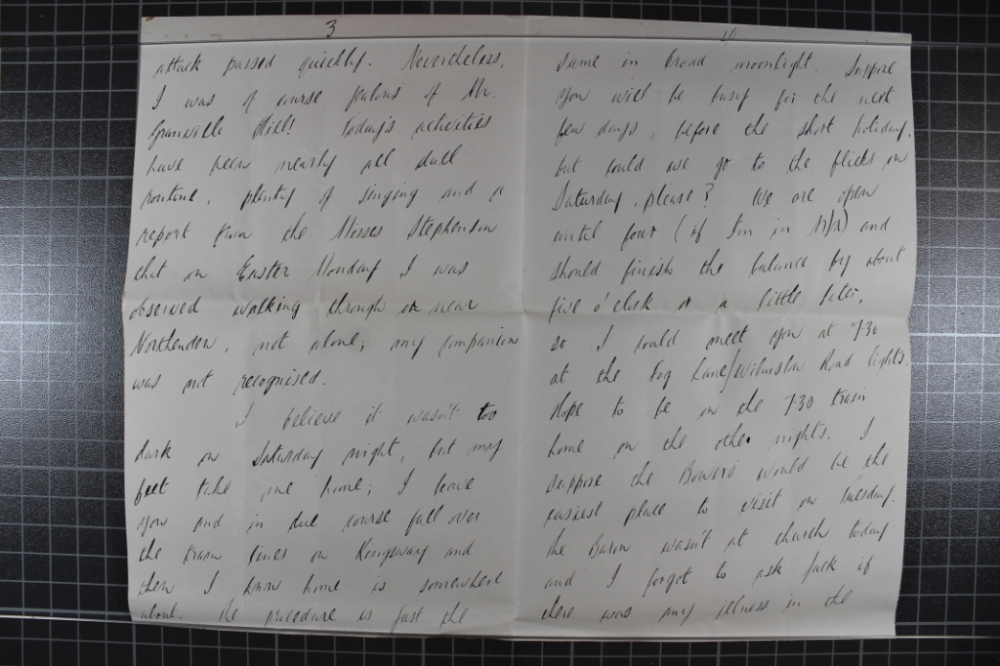 3
attack passed quickly. Nevertheless,
I was of course jealous of Mr.
Granville Hill! Today's activities
have been nearly all dull
routine, plenty of singing and a
report from the Misses Stephenson
that on Easter Monday I was
observed walking through or near
Northenden, not alone; my companion
was not recognised.
I believe it wasn't too
dark on Saturday night, but my
feet take me home; I leave
you and in due course fall over
the tram lines on Kingsway and
then I know home is somewhere
about. The procedure is just the
same in broad moonlight. Suppose
you will be busy for the next
few days, before the short holiday,
but could we go to the flicks on
Saturday, please? We are open
until four (if I'm in M/c) and
should finish the balance by about
five o'clock or a little later,
so I could meet you at 7.30
at the Fog Lane/Wilmslow Road lights.
Hope to be on the 7.30 train
home on the other nights. I
suppose the Bowers would be the
easiest place to visit on Tuesday.
The Baron wasn't at church today
and I forgot to ask Jack if
there was any illness in the